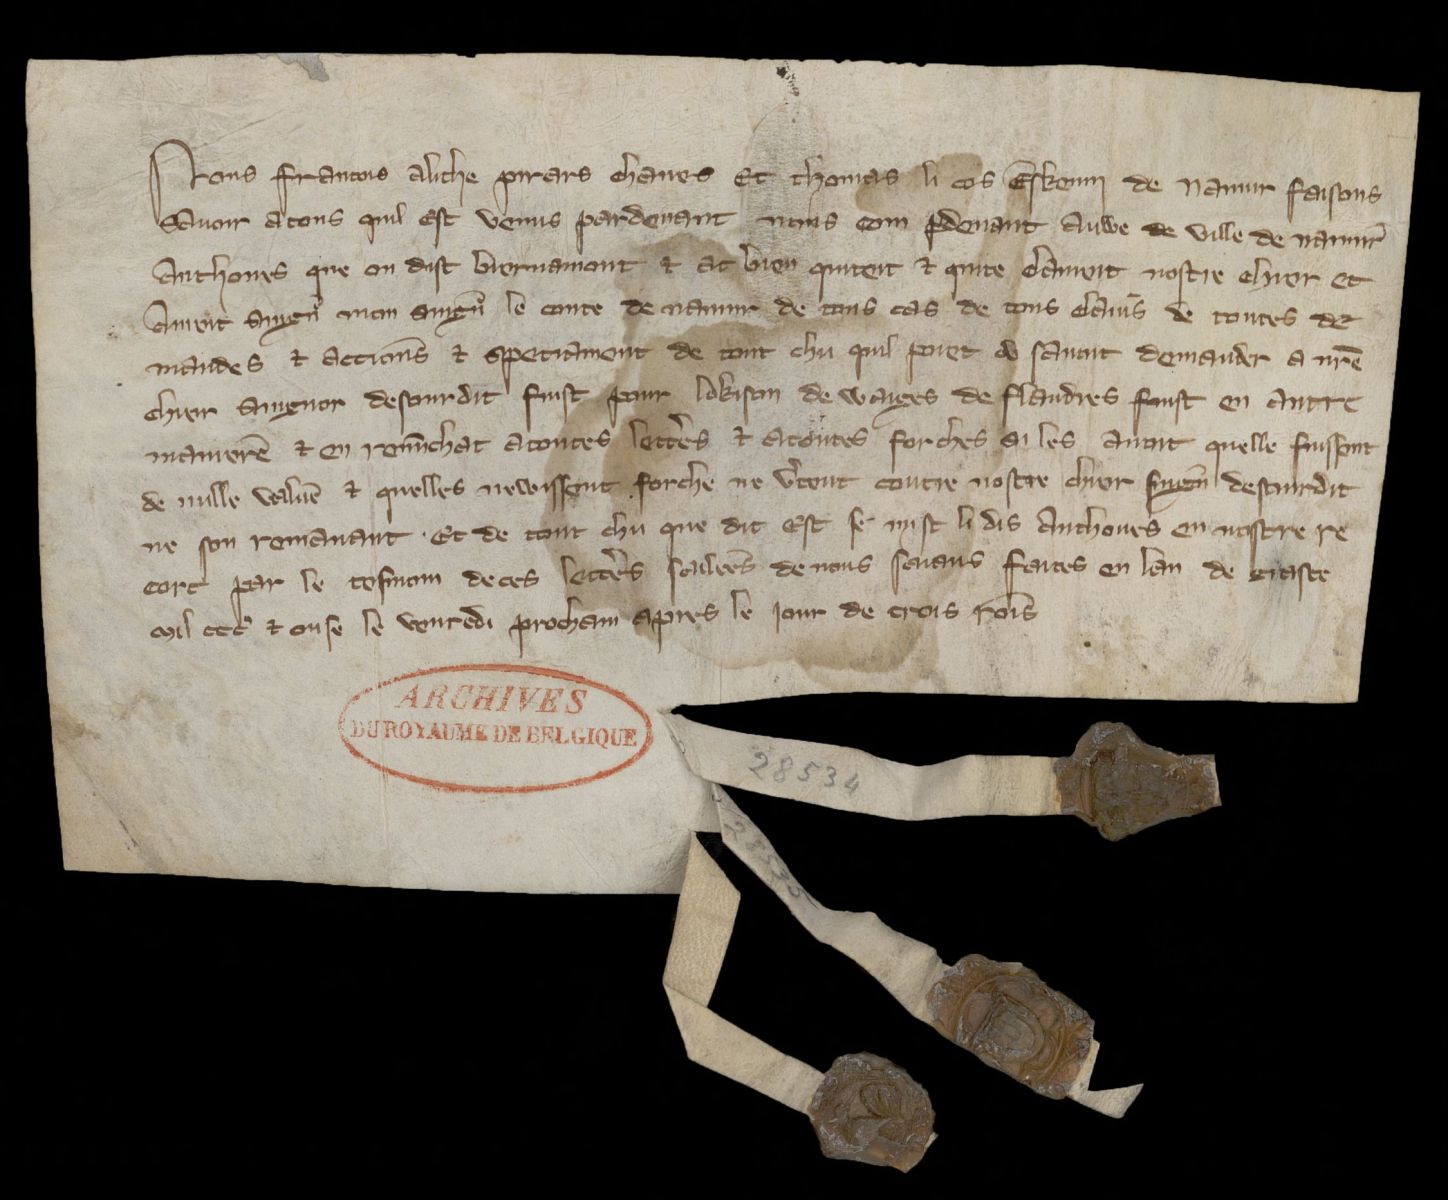 Nous Francois aliche pirars chaues Et thomas li cos Eskeuin de Namur faisons
Sauoir atous quil Est venus pardeuant nous com pdeuant auwe de ville de namur
Anthones que on dist biernamont et at bien quiteit et quite clameit nostre chier et
Ameit singnr mon singnr le conte de namur de tous cas de tous claims de toutes de
mandes et actions et spetiament de tout chu quil puet et sauoit demander a nre
chier singnor desourdit fuist pour lokison de waiges de flandres fuist en autre
maniere et en renunchat atoutes lettres et atoutes forches si les auoit quelle fuissent
de nulle value et quelles newissent forche ne vteut contre nostre chier singnr desourdit
ne son remanant Et de tout chu que dit Est se mist li dis Anthones en nostre re
cort par le tesmoin deces lettres saielees de nous saiaus faites en lan de grasce
Mil ccc et onse le venredi prochain apres le jour de trois rois
ARCHIVES
DU ROYAUME DE BELGIQUE
28534
28535